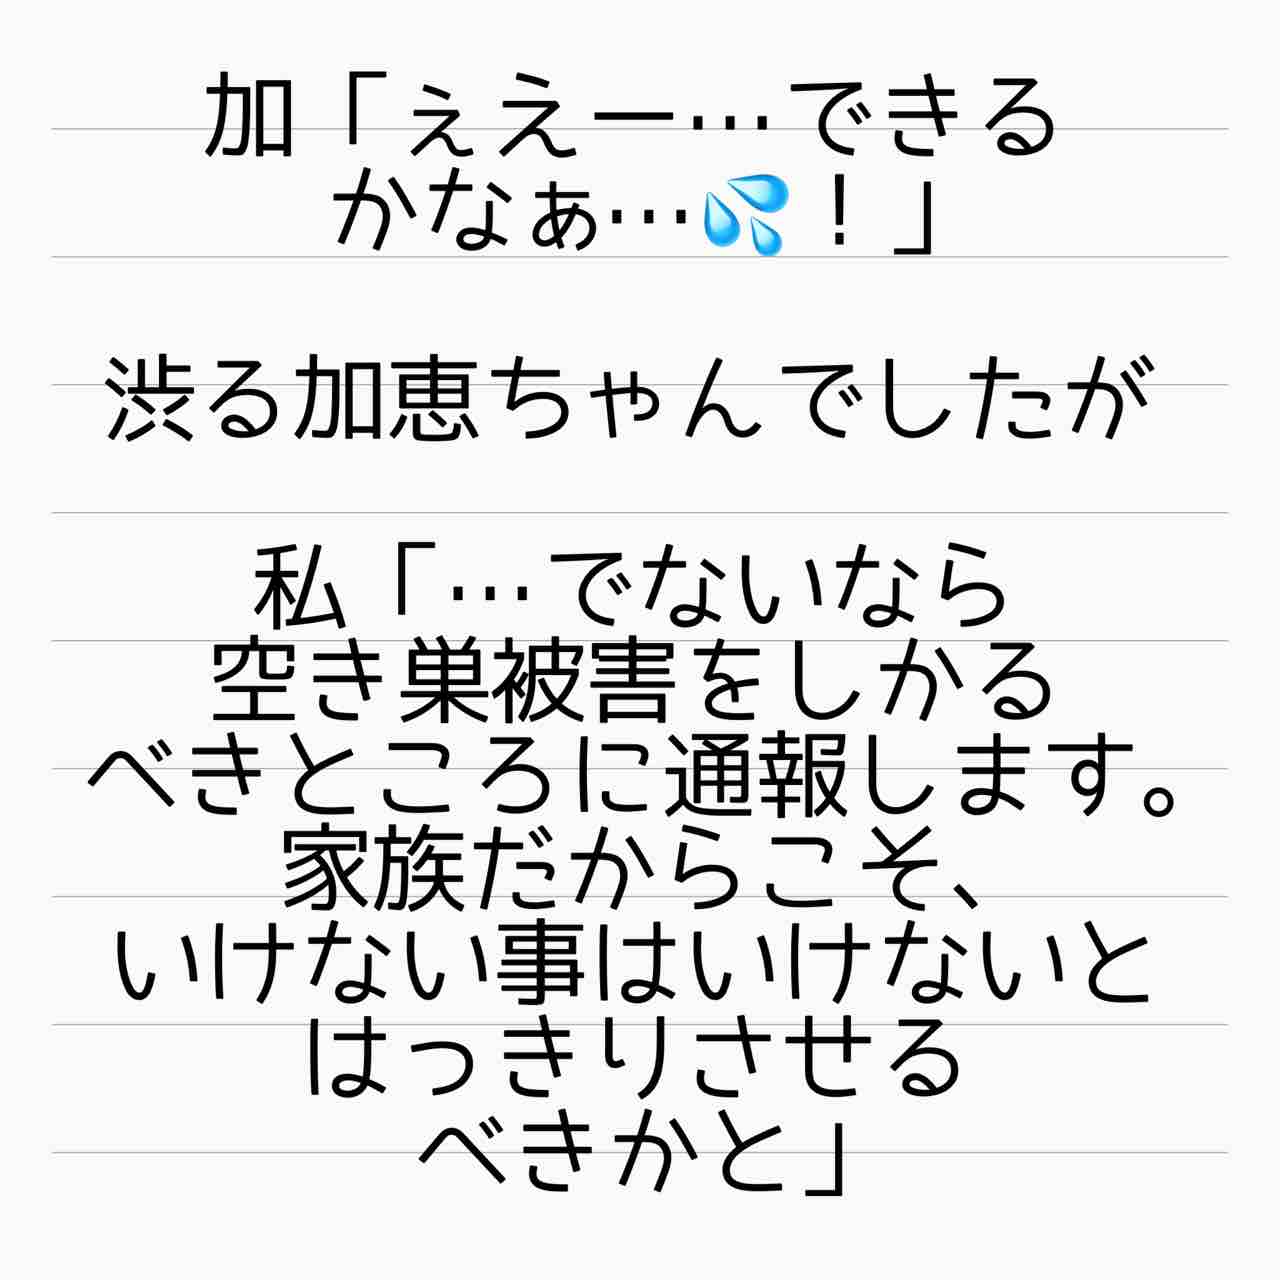 加「ぇえー…できる
かなぁ…💦！」
渋る加恵ちゃんでしたが
私「…でないなら
空き巣被害をしかる
べきところに通報します。
家族だからこそ、
いけない事はいけないと
はっきりさせる
べきかと」